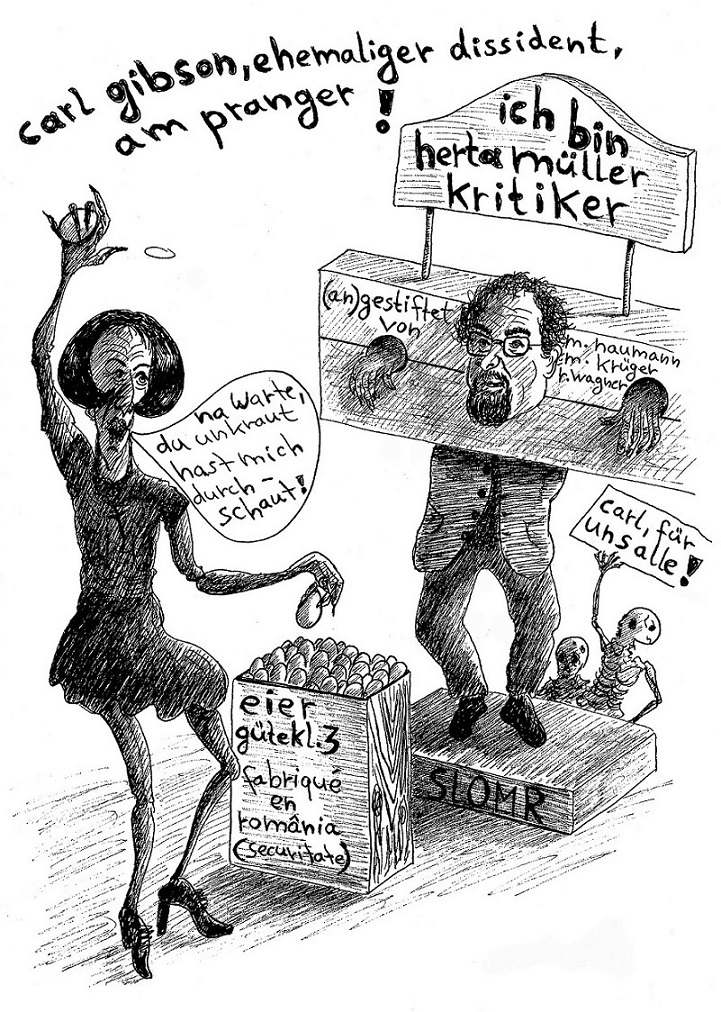 carl gibson, ehemaliger dissident,
am pranger !
ich bin
herta müller
kritiker
(an)gestiftet
von
m. haumann
m. krüger
r. wagner
na warte,
du unkraut
hast mich
durch-
schaut!
carl, für
uns alle!
eier
gütekl. 3
fabriqué
en
românia
(securitate)
SLOMR